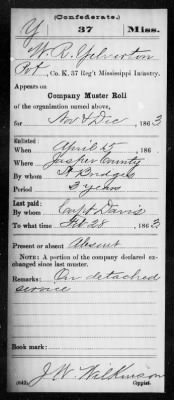 (Confederate.)
Y 37 Miss.
W. R. Yelverton
Pvt, Co. K, 37 Reg't Mississippi Infantry.
Appears on
Company Muster Roll
of the organization named above,
for Nov & Dec, 1863
Enlisted:
When April 25, 186
Where Jasper County
By whom Bridges
Period 3 Years
Last paid:
By whom Capt Davis
To what time Feb 28, 1863
Present or absent Absent
NOTE: A portion of the company declared ex-
changed since last muster.
Remarks: On detached
service
Book mark:
J. W. Wilkinson
(642) Copyist.